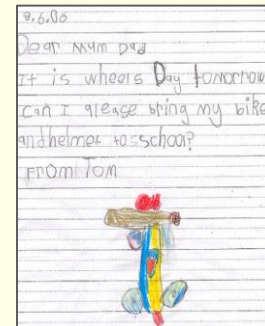 9.6.00
Dear Mum Dad
It is wheels Day tomorrow
Can I please bring my bike
and helmet to school?
From Tom